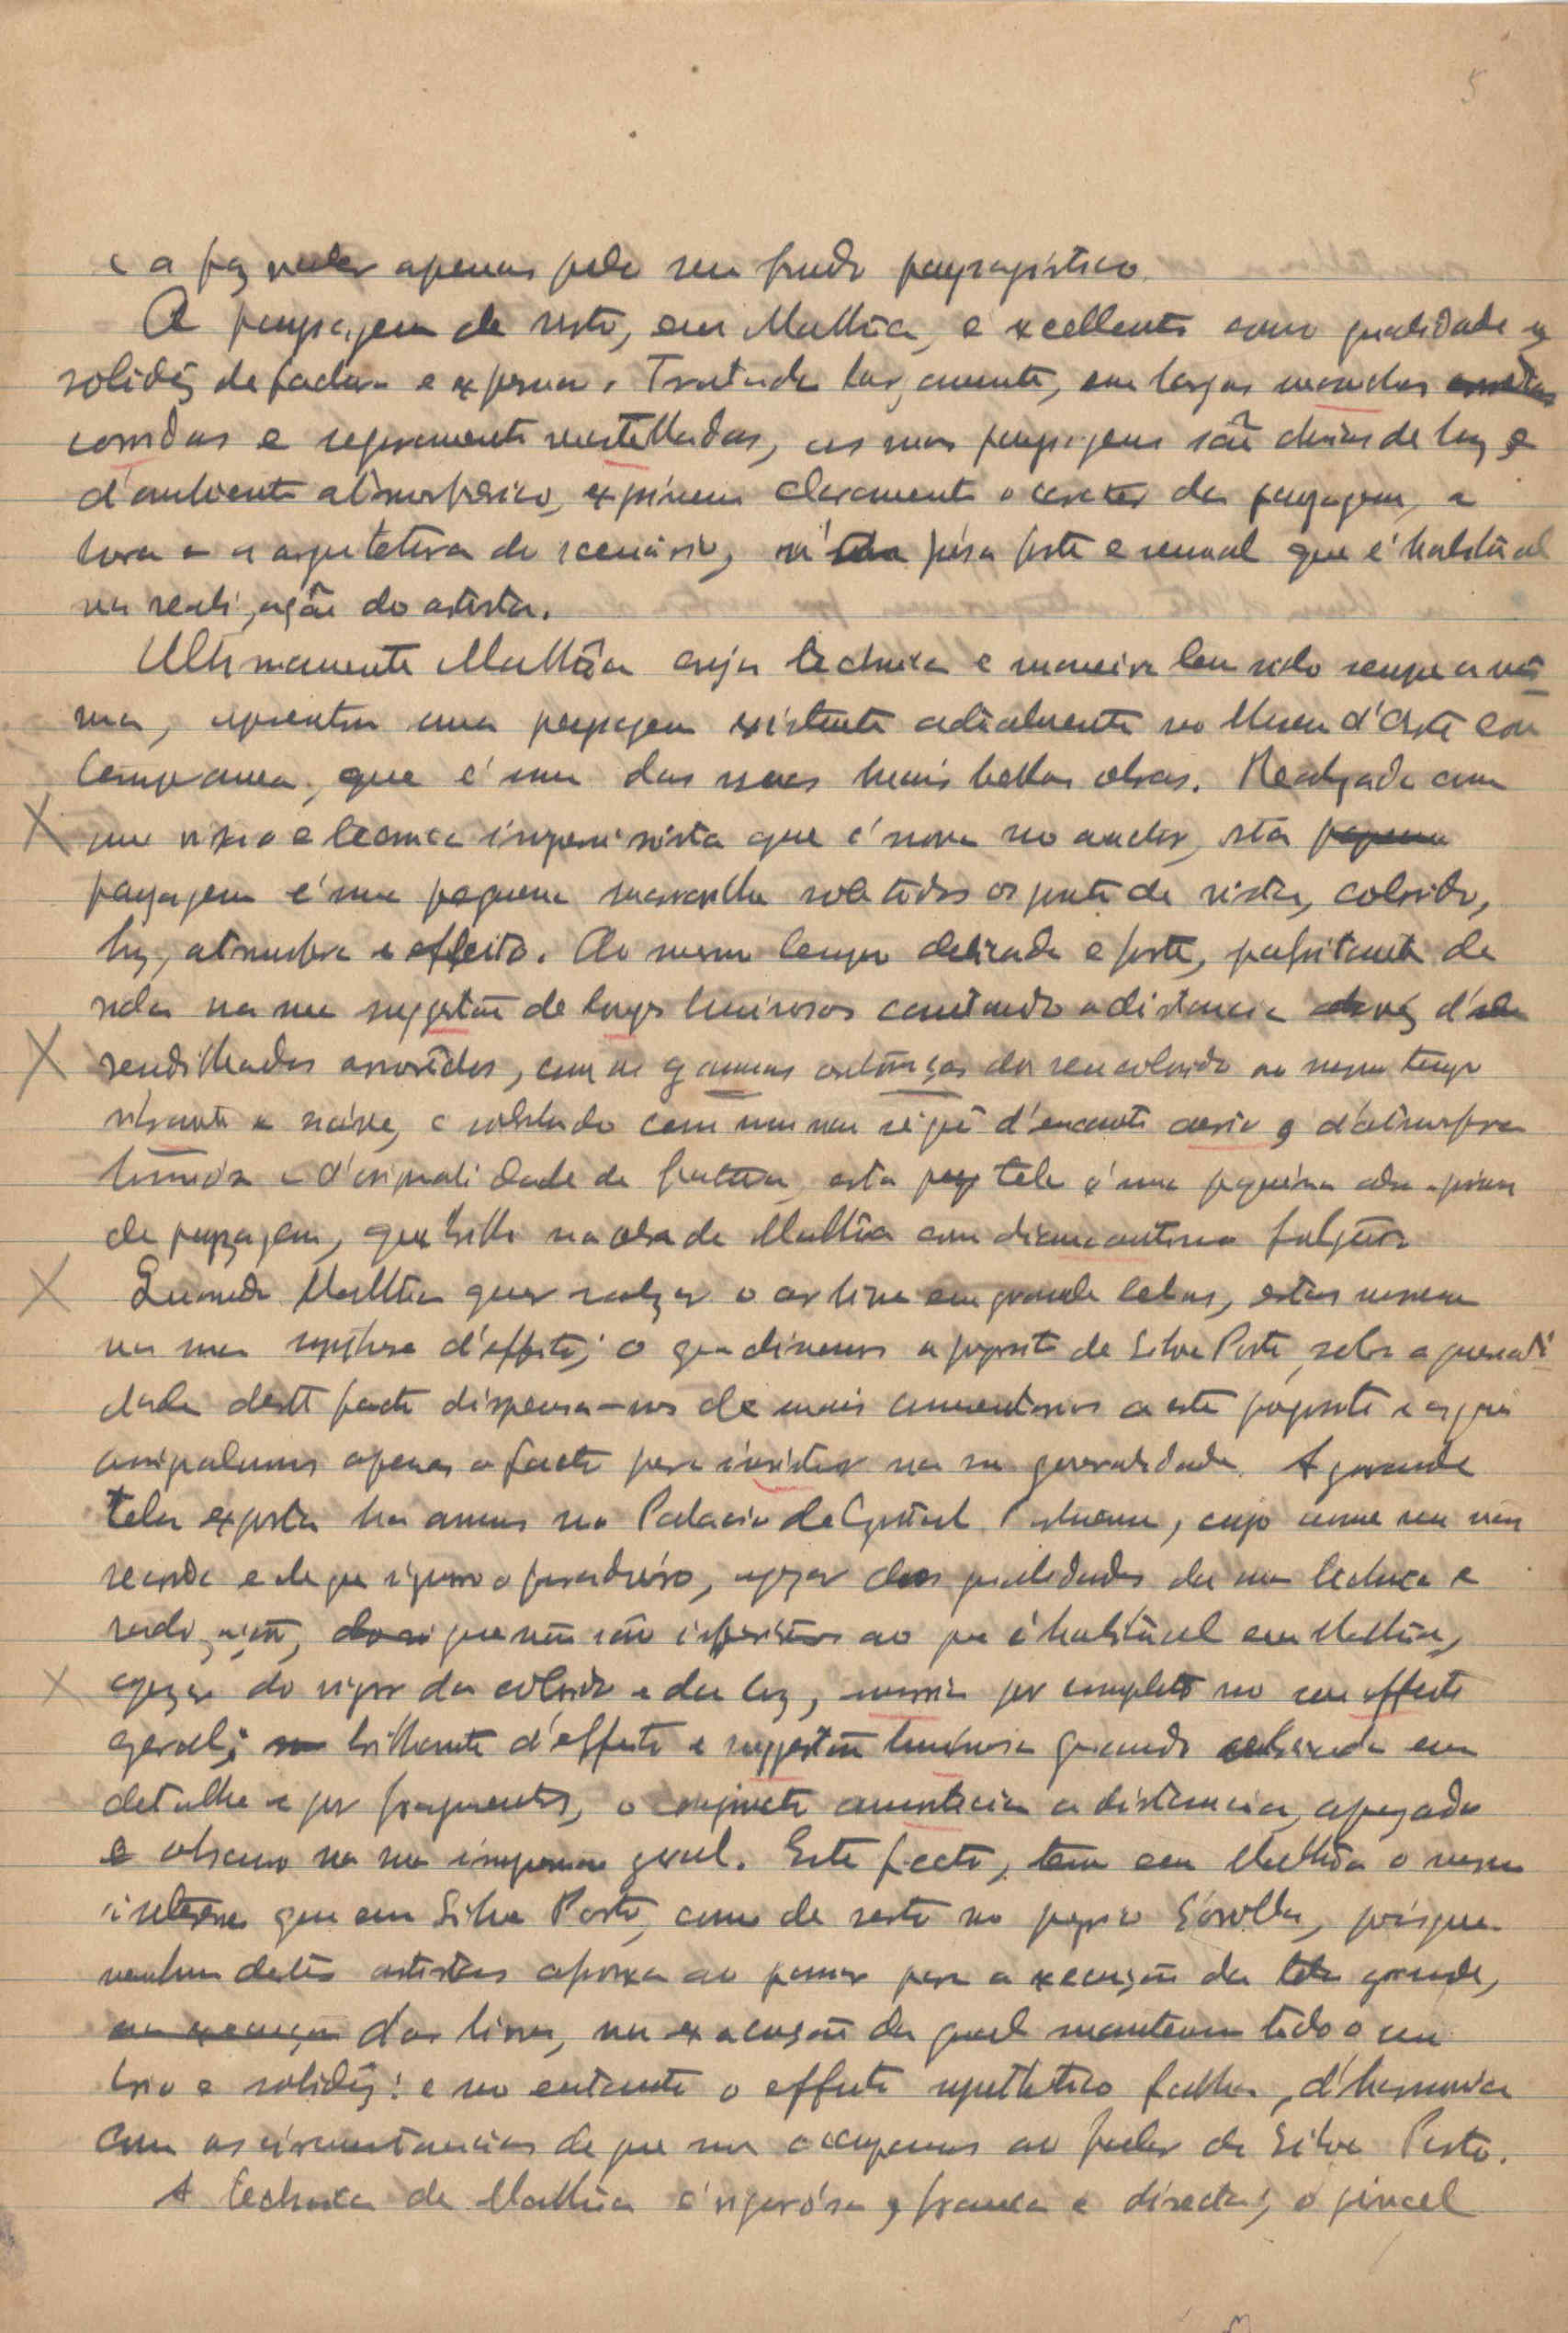 5
e a faz valer apenas pelo seu fundo paysagistico.
A paysagem de resto, em Malhôa, é excellente como qualidade e
solidez de factura e expressão. Tratada largamente, em largas manchas
corridas e seguramente martelladas, as suas paysagens são cheias de luz e
d'ambiente atmosferico, exprimem claramente o caracter da paysagem, a
hora e a arquitetura do scenário, forte e sensual que é habitual
na realização do artista.
Ultimamente Malhôa cuja technica e maneira tem sido sempre a mês
ma, apresentou uma paysagem existente actualmente no Museu d'Arte Con
temporanea, que é uma das suas mais bellas obras. Realizada com
uma visão e tecnica impressionista que é nova no auctor, esta
paysagem é uma pequena maravilha sob todos os pontos de vista, colorido,
luz, atmosfera e effeito. Ao mesmo tempo delicada e forte, palpitante de
vida na sua suggestão de longes luminosos cantando a distancia atravez d'
rendilhados arvoredos, com as gammas do seu colorido ao mesmo tempo
vibrante e suáve, e sobretudo com um não sei quê d'encanto aerio e d'atmosfera
luminósa e d'originalidade de factura, esta tela é uma pequena obra prima
de paysagem, que brilha na obra de Malhôa com diamantino fulgôr.
Quando Malhôa quer realizar o ar livre em grandes telas, estas morrem
na sua synthese d'effeito; o que dissemos a proposito de Silva Porto, sobre a generali
dade deste facto dispensa-nos de mais commentarios a este proposito e aqui
assignalamos apenas o facto para insistir na sua generalidade. A grande
tela exposta ha annos no Palacio de Cristal Portuense, cujo nome nos não
recorda e de que ignoro o paradeiro, apezar das qualidades da sua technica e
realização, que não são inferiores ao que é habitual em Malhôa,
apezar do vigor do colorido e da luz, morria por completo no seu effeito
geral; brilhante d'effeito e suggestão luminosa quando observada em
detalhe e por fragmentos, o conjuncto amortecia a distancia, apagado
e obscuro na sua impressão geral. Este facto, tem em Malhôa o mesmo
interesse que em Silva Porto, como de resto no proprio Sorolla, porque
nenhum destes artistas afrouxa ao passar para a execução da tela grande,
na execução do ar livre, na execução da qual manteem todo o seu
brio e solidez: e no entanto o effeito synthetico falha, d'harmonia
com as circumstancias de que nos occupamos ao falar de Silva Porto.
A technica de Malhôa é vigorósa, franca e directa; o pincel